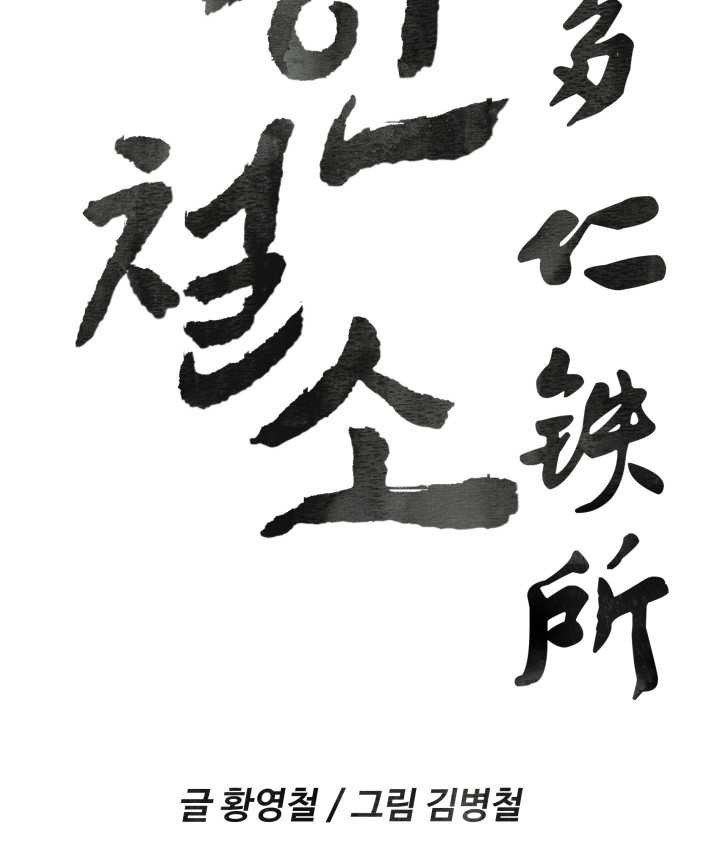 인철소
多仁铁所
글 황영철 / 그림 김병철